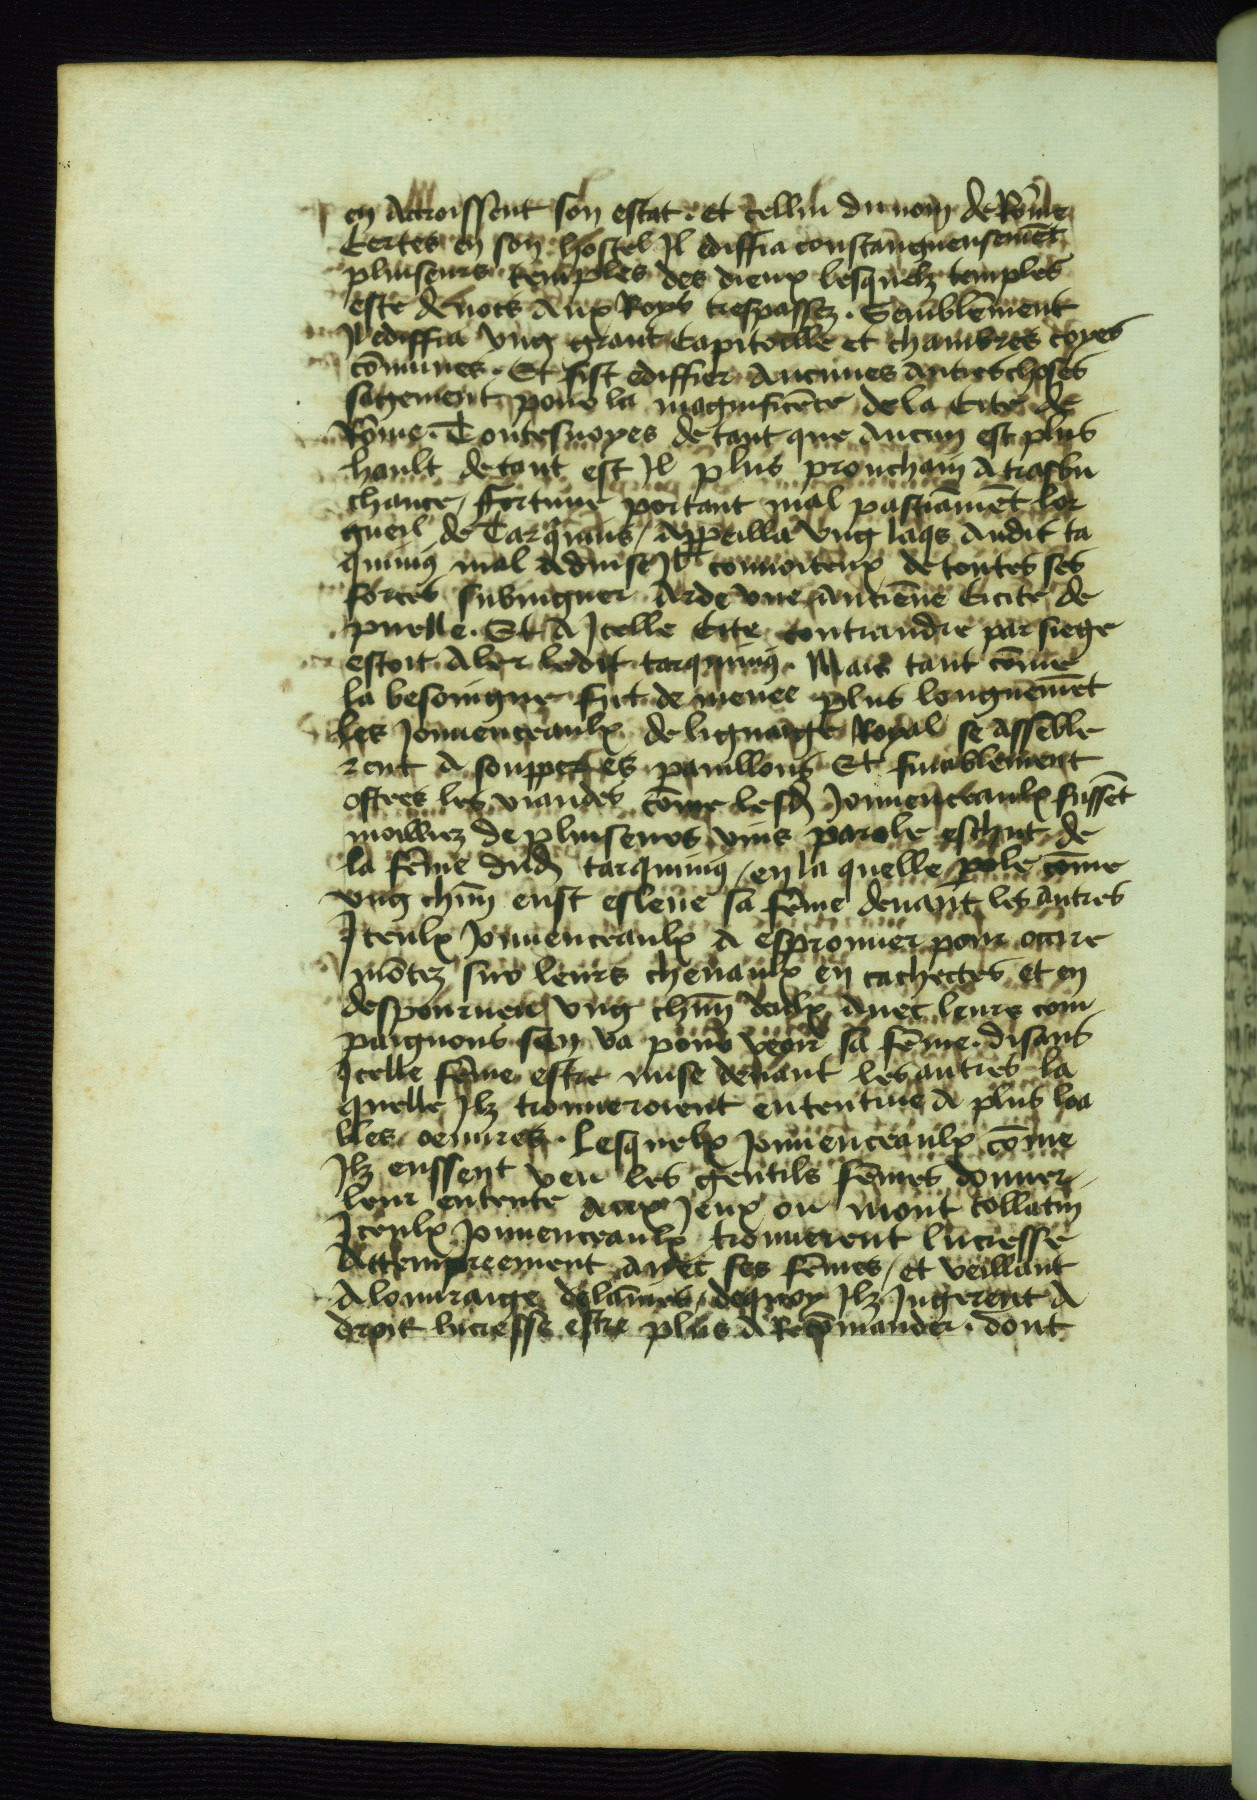 en Accroissent son estat. et cellui du nom de Rōme
Certes en son hostel Il ediffia constangneusemēt
pluiseurs temples des dieux lesquelz temples
este deuots Aux Roys trespassez. Semblēment
Il ediffia vng grant Capitolle et chambres coyes
cōmunes. Et fist ediffier Aucunes Autres choses
sagement pour la magnificēce de la Cite de
Rōme. Toutesuoyes de tant que Aucun est plus
hault de tant est Il plus prouchain A trasbu
chance, ffortune portant mal pastiāmēt lor
gueil de Tarquins, Appeilla vng laqs Audit ta
quiniꝰ mal Aduise Il conuoiteux de toutes ses
forces subiuguer Arde vne Anciēne Cicite de
puelle. Et A Icelle Cite contraindre par siege
estoit Aler ledit tarquiniꝰ. Mais tant cōme
la besoingne fut de menee plus longuemēt
les Jouuenceaulx de lignaige Royal se Assēble
rent A soupper es pauillons Et finablement
ostees les viandes cōme lesd Jouuenceaulx fussēt
moilliez de pluiseurs vins parole eschut de
la fēme dud tarquiniꝰ, en la quelle pole cōme
vng chūn eust esleue sa fēme deuant les autres
Iceulx Jouuenceaulx A esprouuer pour ocire
mōtez sur leurs cheuaulx en cachectes et en
despourueu vng chūn deulx Auec leurs com
paignons sen va pour veoir sa fēme. disans
Icelle fēme estre mise deuant les autres la
quelle Ilz trouueroient ententiue A plus loa
bles oeuures. Lesquelx Jouuenceaulx cōme
Ilz eussent veu les gentils fēmes donner
leur entente Aux Jeux ou mont collatin
Iceulx Jouuenceaulx trouuerent lucresse
Attempreement Auec ses fēmes, et veillant
A louuraige de lānies, dequoy Ilz Jugerent A
droit lucresse estre plus A Recōmander. dont